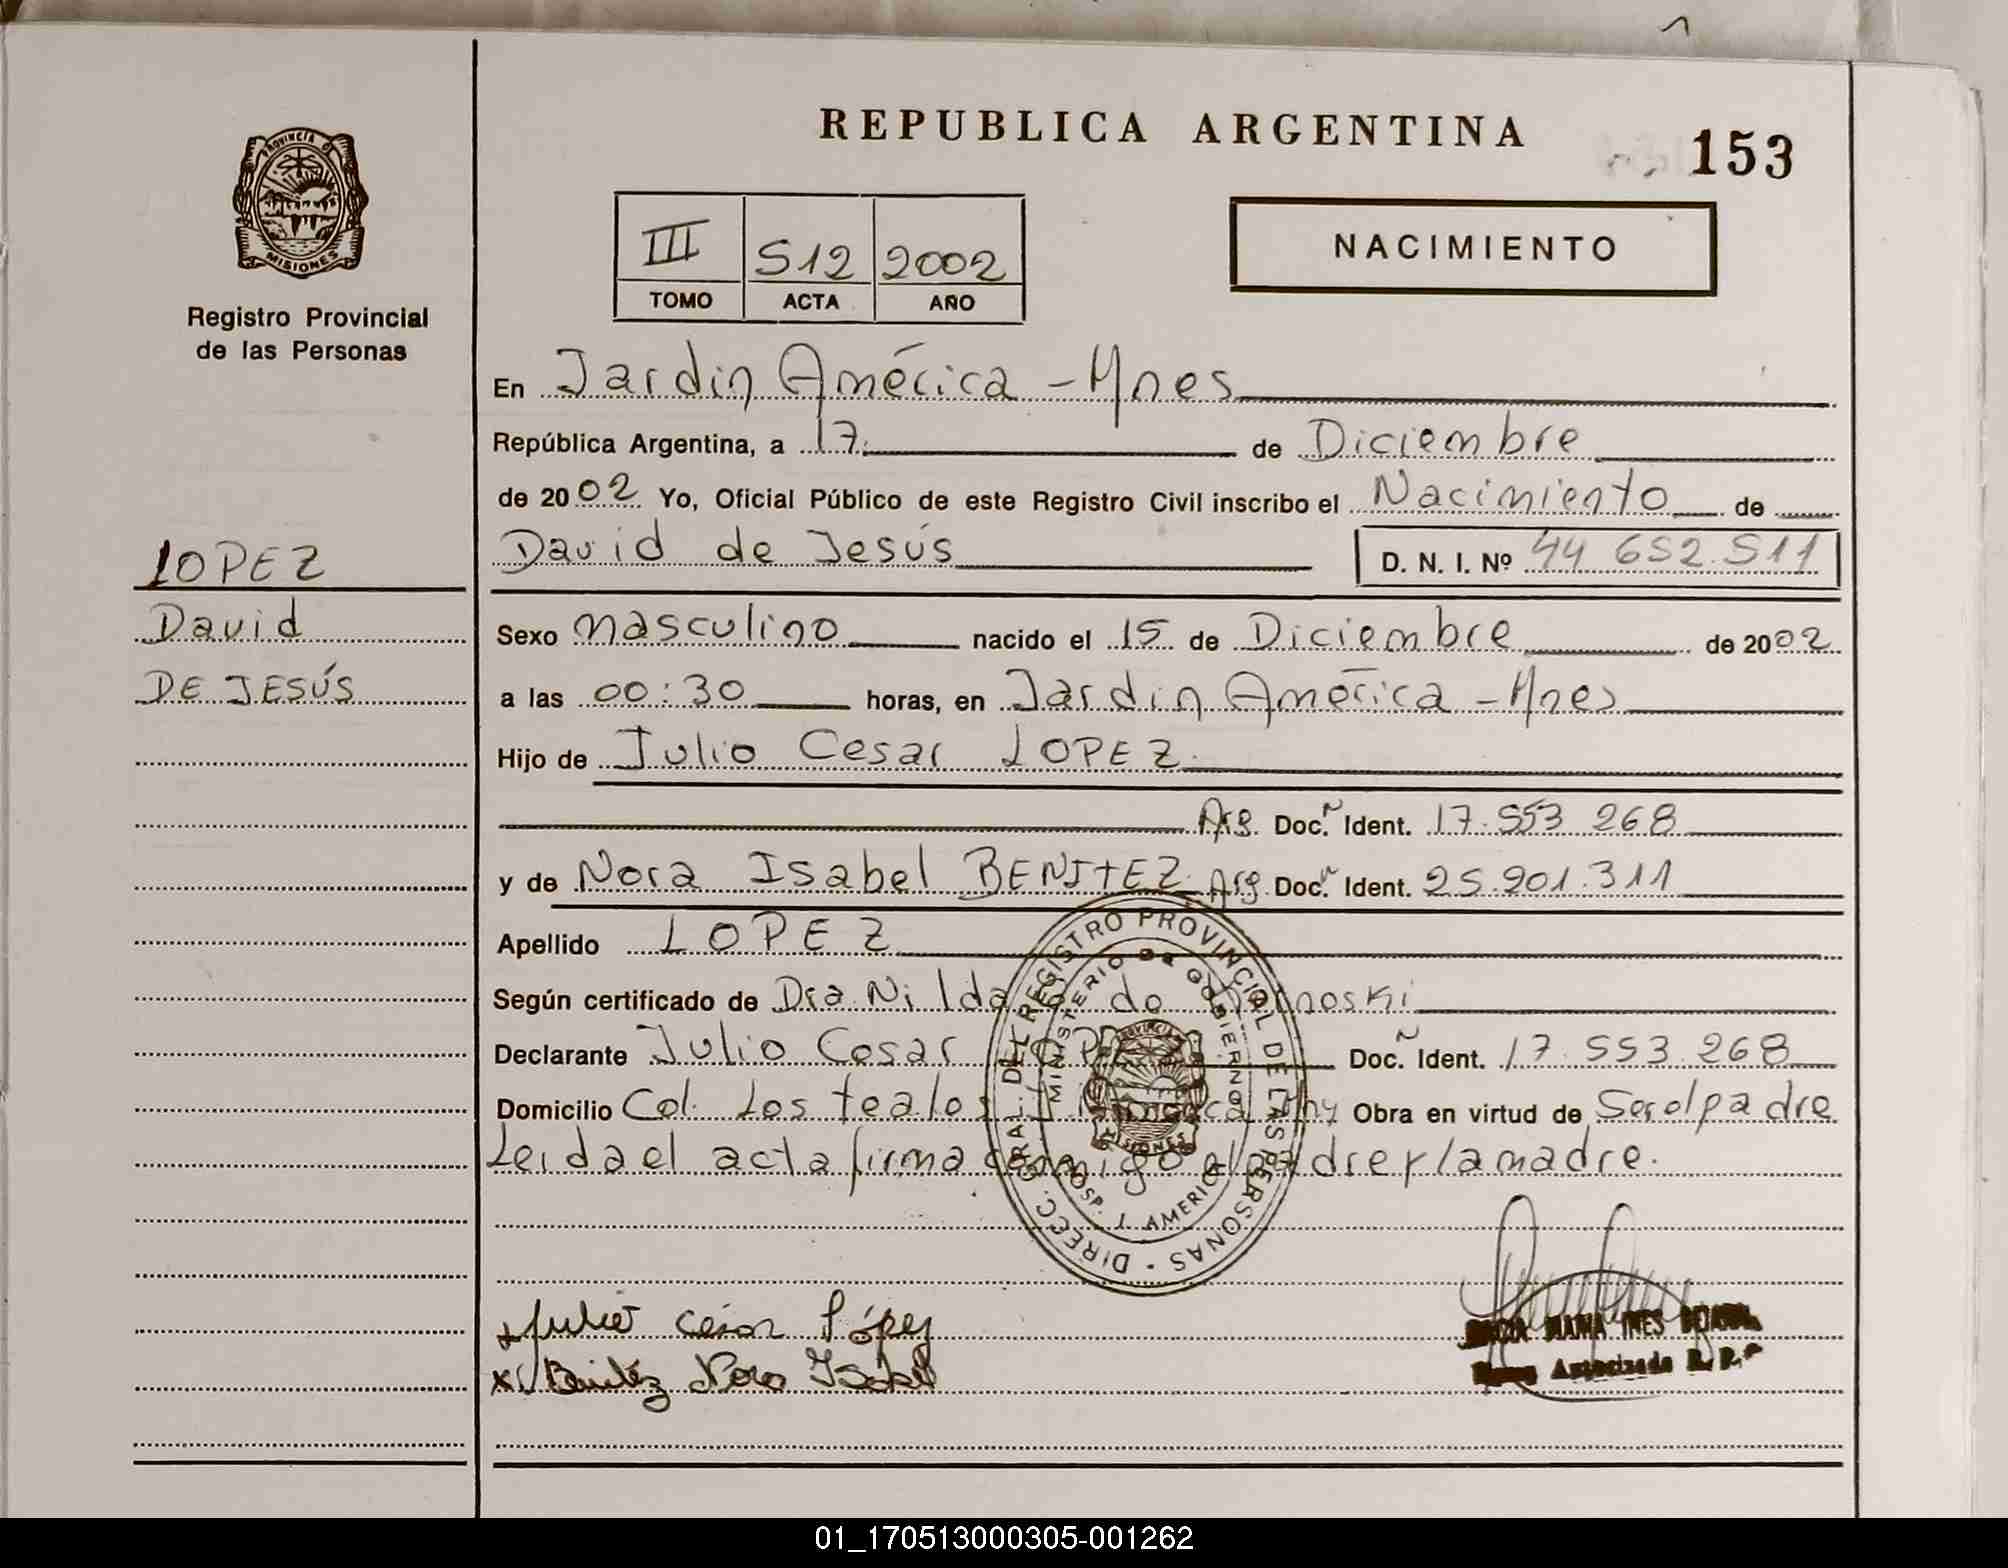 REPUBLICA ARGENTINA
153
PROVINCIA DE
MISIONES
Registro Provincial
de las Personas
III S12 2002
TOMO ACTA AÑO
NACIMIENTO
En Jardin América - Mnes
República Argentina, a 17 de Diciembre
de 2002 Yo, Oficial Público de este Registro Civil inscribo el Nacimiento de
David de Jesús D. N. I. Nº 44 652.511
LOPEZ
David
DE JESÚS
Sexo masculino nacido el 15 de Diciembre de 2002
a las 00:30 horas, en Jardin América - Mnes
Hijo de Julio Cesar LOPEZ
Arg. Doc. Ident. 17.553 268
y de Nora Isabel BENITEZ Arg. Doc. Ident. 25.901.311
Apellido LOPEZ
Según certificado de Dra. Nilda de
Declarante Julio Cesar LOPEZ Doc. Ident. 17.553.268
Domicilio Col. Los tealos Obra en virtud de Ser el padre
Leida el acta firma conmigo el padre y la madre.
DIREC. GRAL. DEL REGISTRO PROVINCIAL DE LAS PERSONAS
MINISTERIO DE GOBIERNO
HOSP. J. AMERICA
Julio César López
Benitéz Nora Isabel
MARIA INES
Autorizada R. P.
01_170513000305-001262